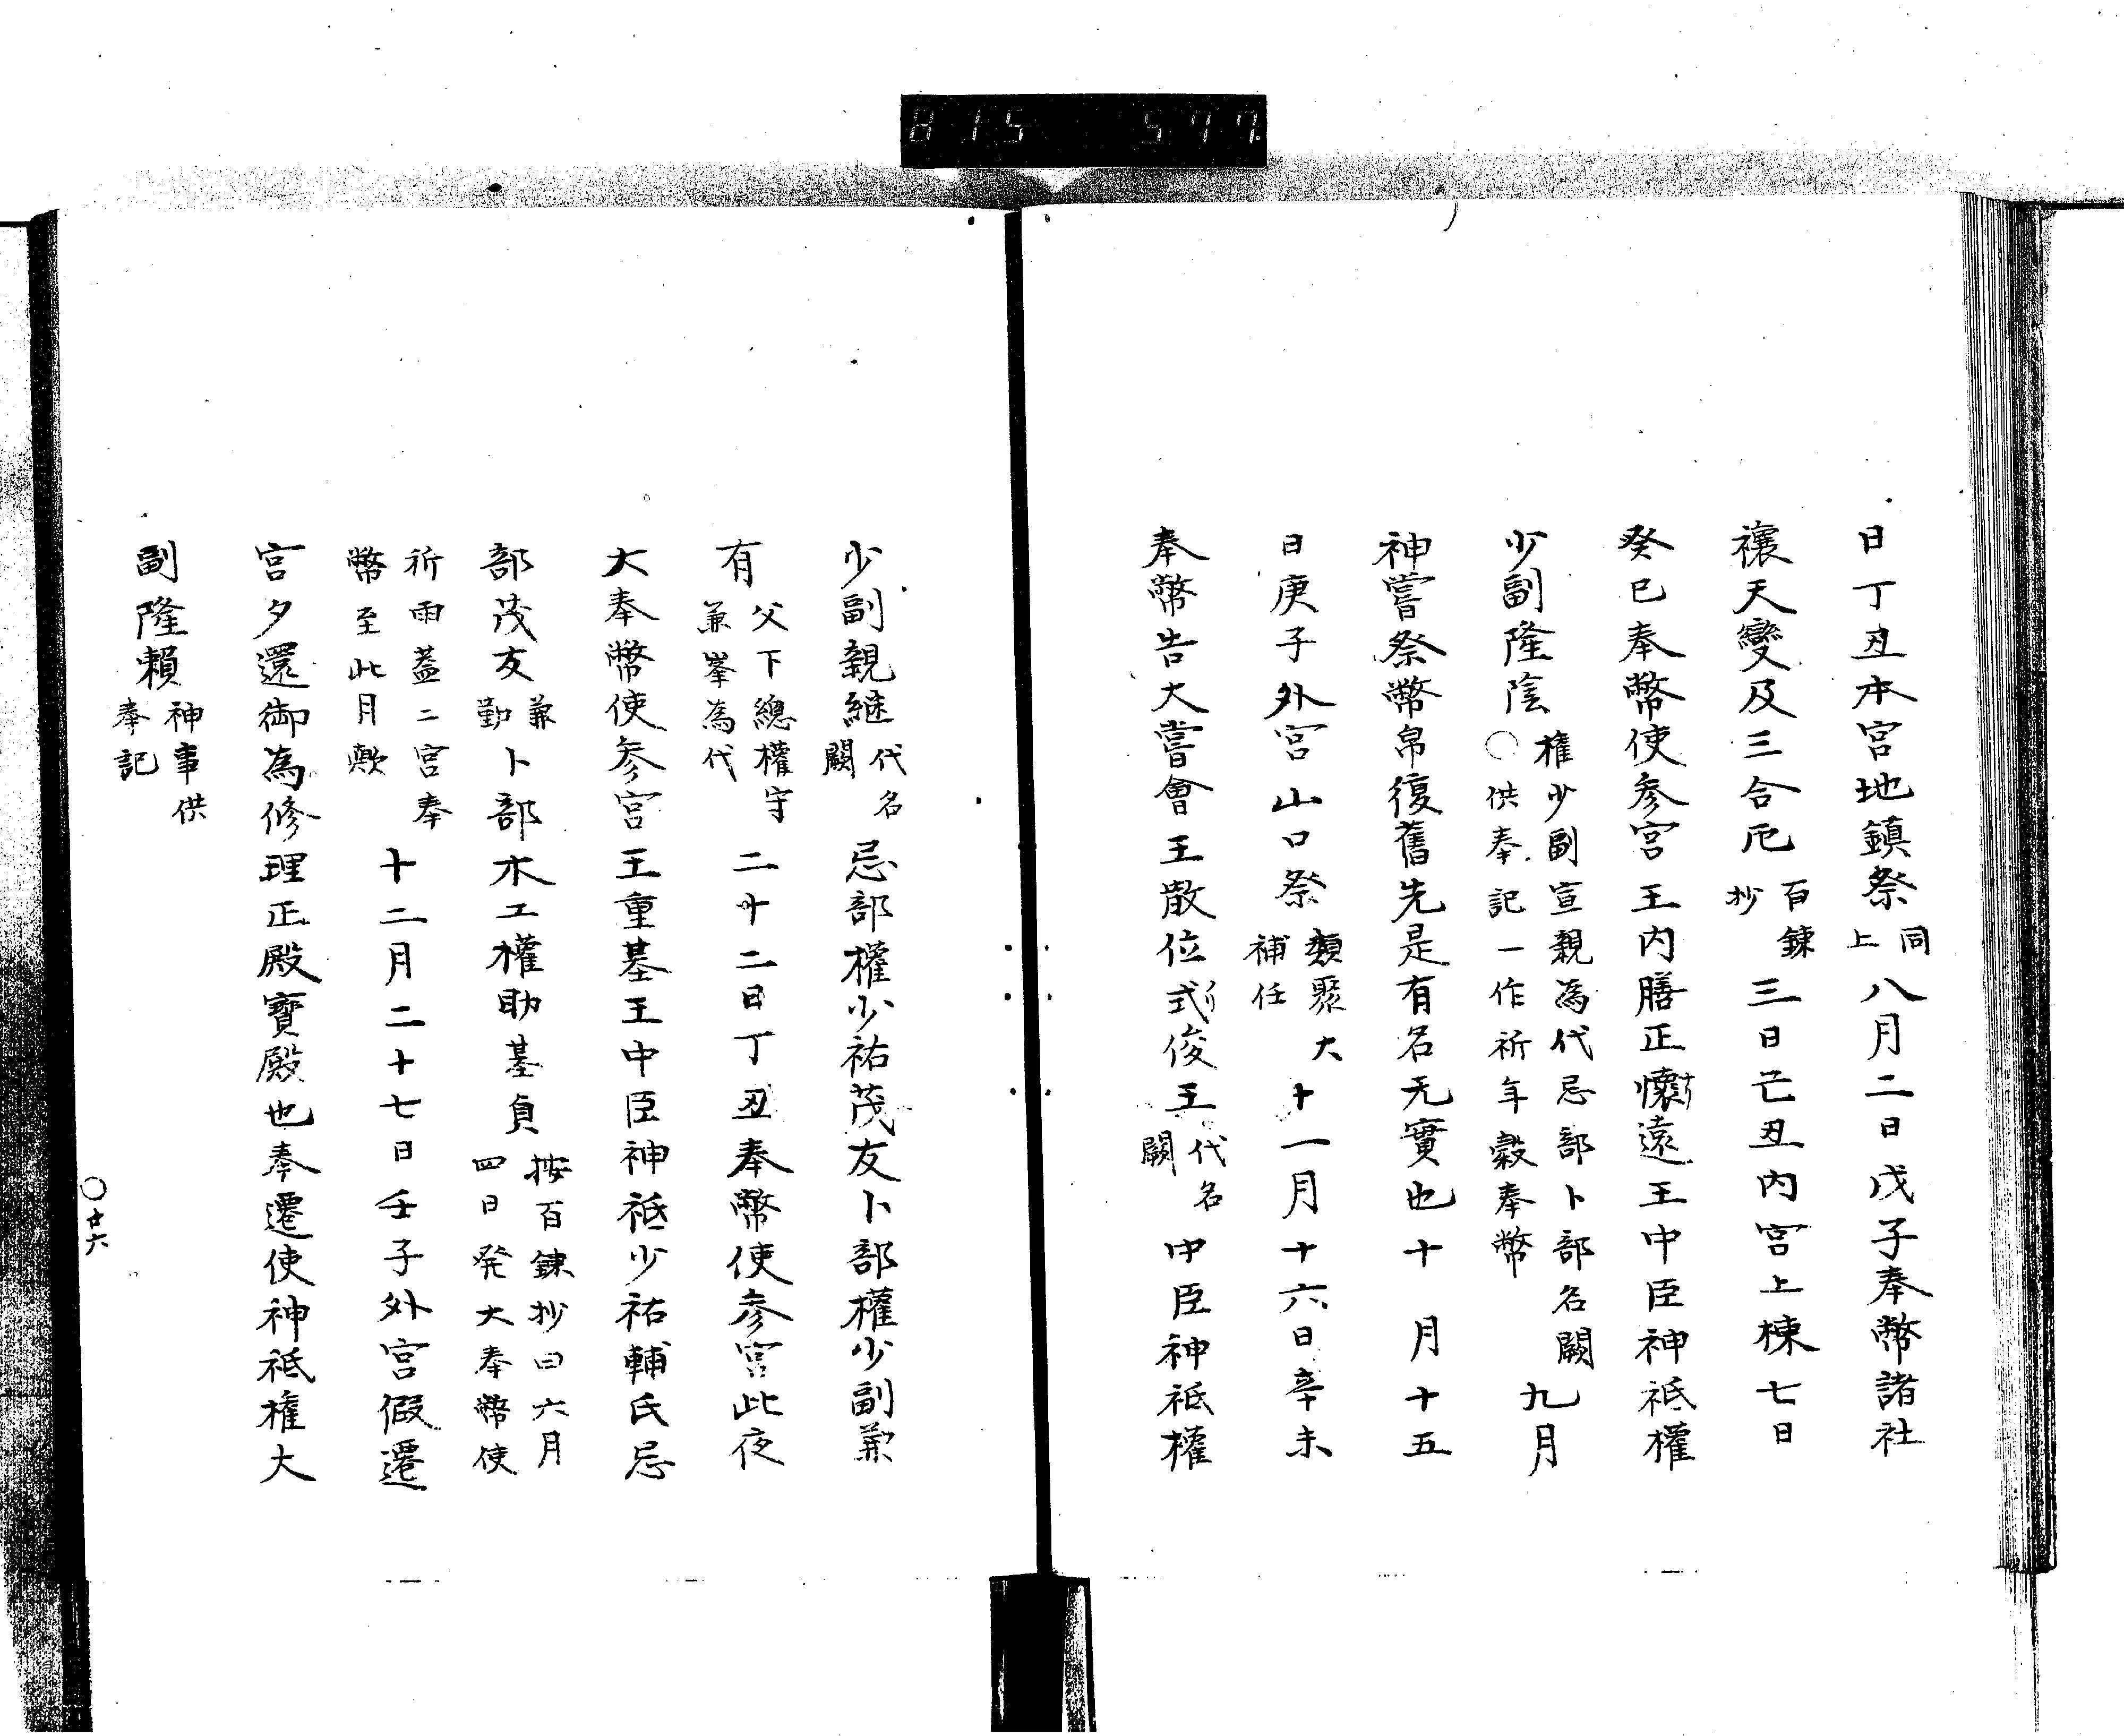 815 577
日丁丑本宮地鎮祭同上八月二日戊子奉幣諸社
禳天變及三合厄百錬抄三日己丑内宮上棟七日
癸巳奉幣使参宮王内膳正懐遠王中臣神祇權
少副隆陰権少副宣親為代忌部卜部名闕○供奉記一作祈年穀奉幣九月
神嘗祭幣帛復舊先是有名无實也十月十五
日庚子外宮山口祭類聚大補任十一月十六日辛未
奉幣告大嘗會王散位式俊王代名闕中臣神祇權
少副親継代名闕忌部權少祐茂友卜部權少副兼
有父下總權守兼峯為代二十二日丁丑奉幣使参宮此夜
大奉幣使参宮王重基王中臣神祇少祐輔氏忌
部茂友兼勤卜部木工權助基負按百錬抄曰六月四日発大奉幣使
祈雨蓋二宮奉幣至此月歟十二月二十七日壬子外宮假遷
宮夕還御為修理正殿寶殿也奉遷使神祇権大
副隆頼神事供奉記
○廿六